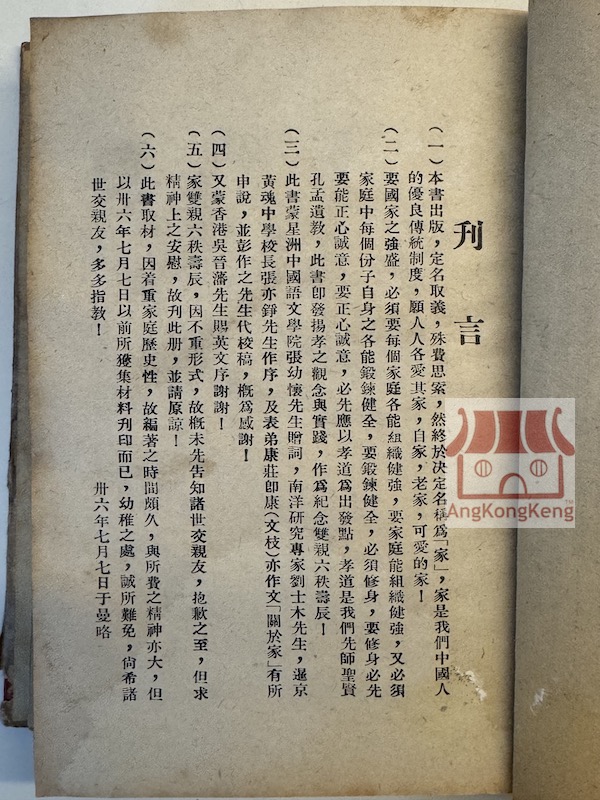 刊言
(一)本書出版,定名取義,殊費思索,然終於決定名稱爲「家」,家是我們中國人
的優良傳統制度,願人人各愛其家,自家,老家,可愛的家!
(二)要國家之強盛,必須要每個家庭各能組織健強,要家庭能組織健強,又必須
家庭中每個份子自身之各能鍛鍊健全,要鍛鍊健全,必須修身,要修身必先
要能正心誠意,要正心誠意,必先應以孝道爲出發點,孝道是我們先師聖賢
孔孟遺教,此書卽發揚孝之觀念與實踐,作爲紀念雙親六秩壽辰!
(三)此書蒙星洲中國語文學院張幼懷先生贈詞,南洋研究專家劉士木先生,暹京
黃魂中學校長張亦錚先生作序,及表弟康莊卽康(文枝)亦作文「關於家」有所
申說,並彭作之先生代校稿,槪爲感謝!
(四)又蒙香港吳晉藩先生賜英文序謝謝!
(五)家雙親六秩壽辰,因不重形式,故槪未先告知諸世交親友,抱歉之至,但求
精神上之安慰,故刊此册,並請原諒!
(六)此書取材,因着重家庭歷史性,故編著之時間頗久,與所費之精神亦大,但
以卅六年七月七日以前所獲集材料刋印而已,幼稚之處,誠所難免,尙希諸
世交親友,多多指教!
卅六年七月七日于曼咯
AngKongKeng
TM